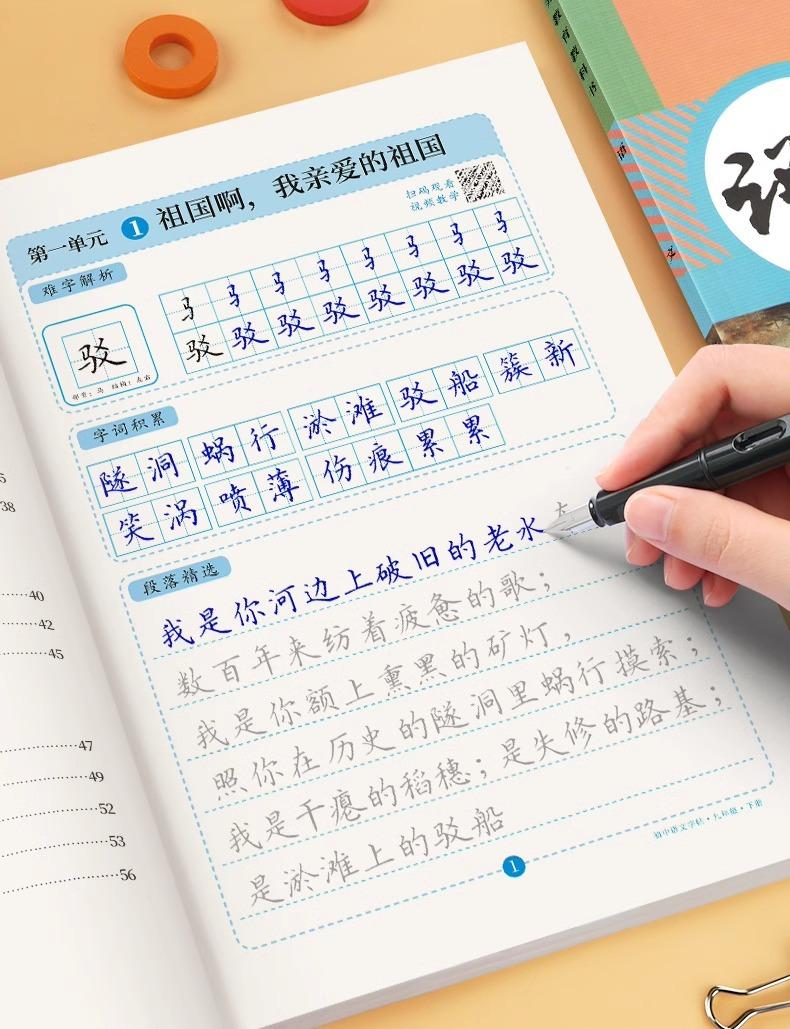 第一单元 1 祖国啊，我亲爱的祖国
扫码观看
视频教学
难字解析
马 马 马 马 马 马 马 马
驳 驳 驳 驳 驳 驳 驳 驳
驳
部首：马 结构：左右
字词积累
隧洞 蜗行 淤滩 驳船 簇新
笑涡 喷薄 伤痕 累累
段落精选
我是你河边上破旧的老水
数百年来纺着疲惫的歌；
我是你额上熏黑的矿灯，
照你在历史的隧洞里蜗行摸索；
我是干瘪的稻穗；是失修的路基；
是淤滩上的驳船
初中语文字帖·九年级·下册
1
38
40
42
45
47
49
52
53
56
教育教科书
语